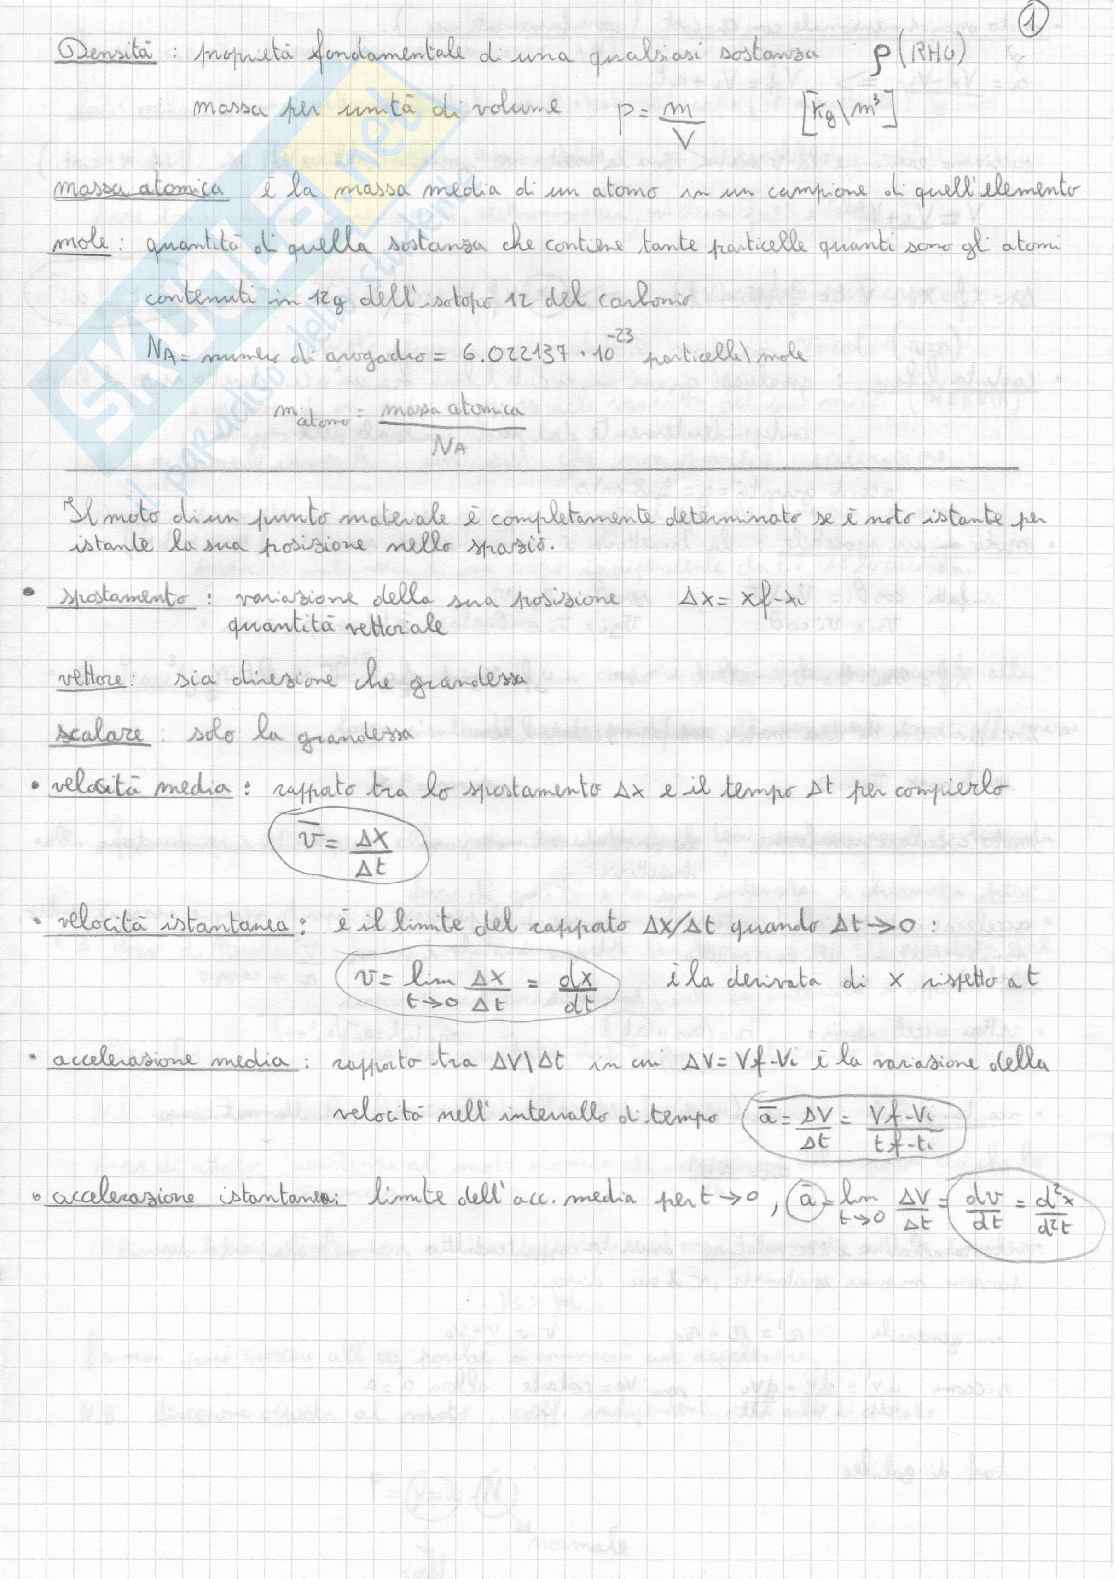 1
Densità : proprietà fondamentale di una qualsiasi sostanza ρ (RHO)
massa per unità di volume ρ = m/V [kg\m³]
massa atomica è la massa media di un atomo in un campione di quell'elemento
mole : quantità di quella sostanza che contiene tante particelle quanti sono gli atomi
contenuti in 12g dell'isotopo 12 del carbonio
NA = numero di avogadro = 6.022137 · 10⁻²³ particelle\mole
m atomo = massa atomica / NA
Il moto di un punto materiale è completamente determinato se è noto istante per
istante la sua posizione nello spazio.
• spostamento : variazione della sua posizione Δx = xf-xi
quantità vettoriale
vettore: sia direzione che grandezza
scalare : solo la grandezza
• velocità media : rapporto tra lo spostamento Δx e il tempo Δt per compierlo
v̄ = Δx/Δt
• velocità istantanea : è il limite del rapporto Δx/Δt quando Δt→0 :
v = lim t→0 Δx/Δt = dx/dt è la derivata di x rispetto a t
• accelerazione media : rapporto tra ΔV\Δt in cui ΔV = Vf-Vi è la variazione della
velocità nell'intervallo di tempo ā = ΔV/Δt = Vf-Vi/tf-ti
• accelerazione istantanea: limite dell'acc. media per t→0 , ā = lim t→0 ΔV/Δt = dv/dt = d²x/d²t
SKUOLA.net
il paradiso dello studente